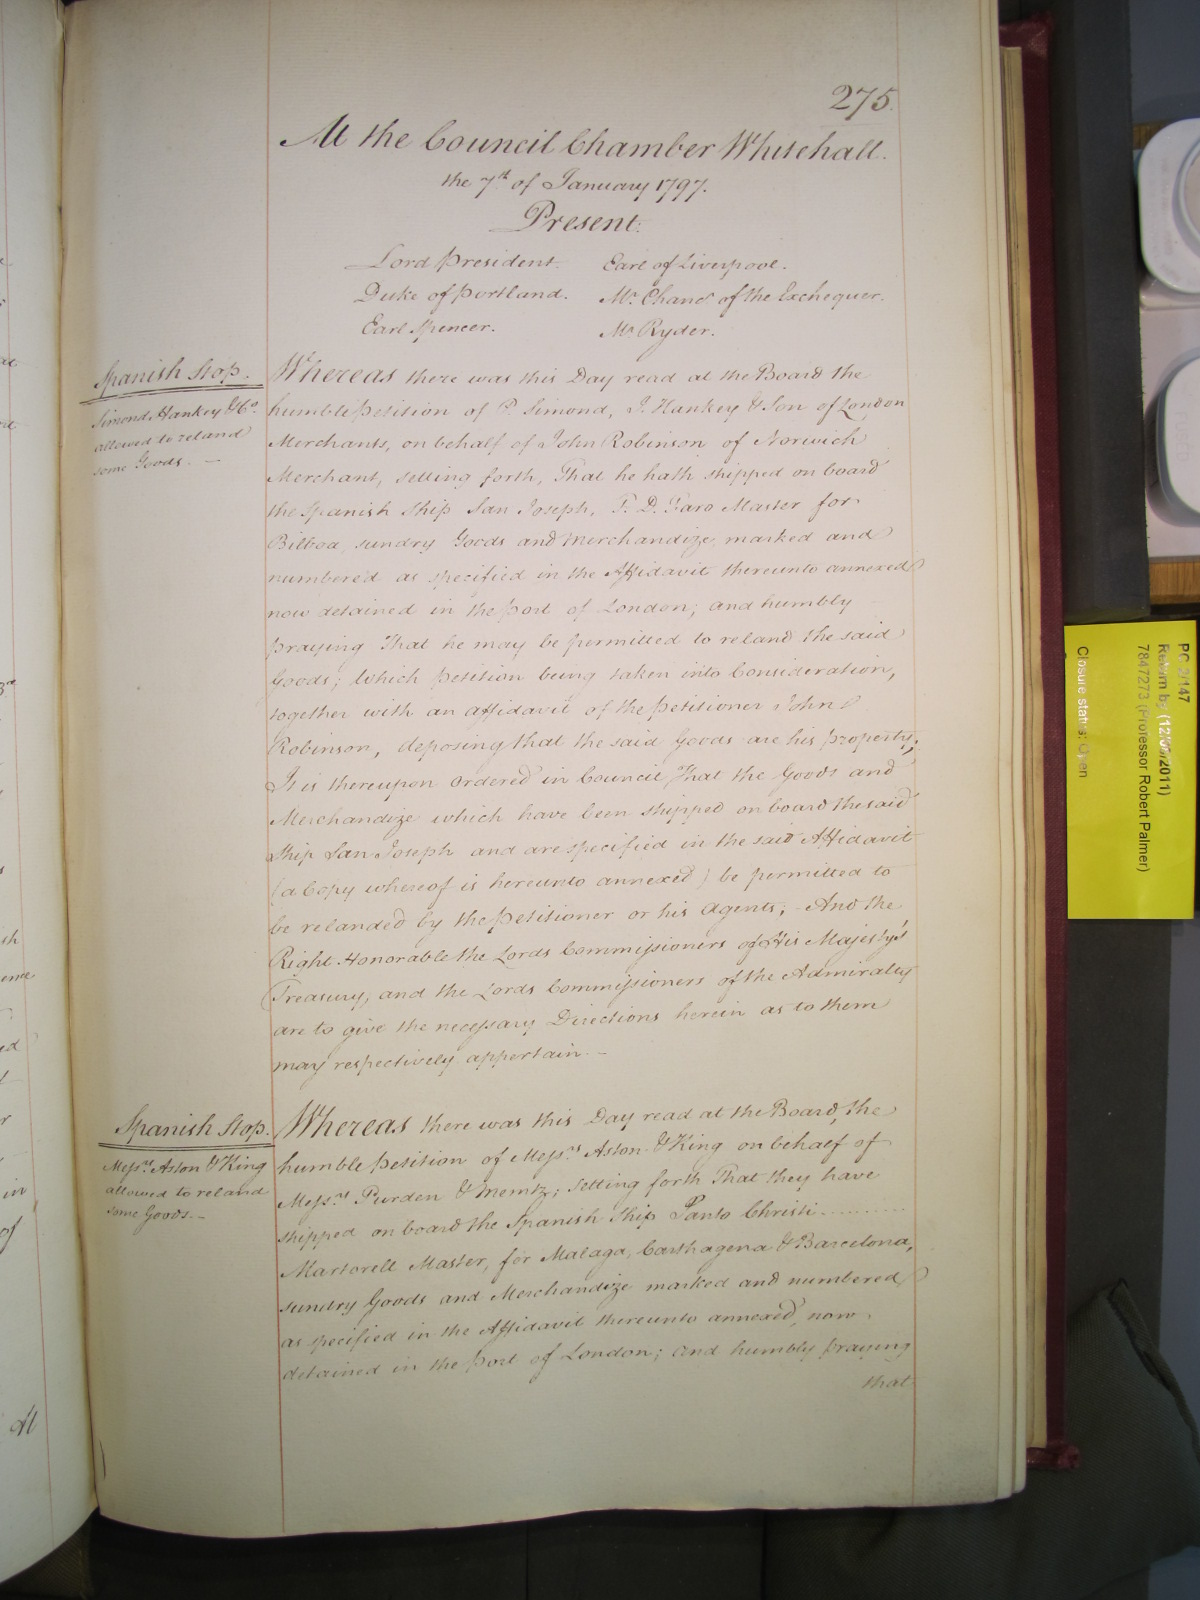 275.
At the Council Chamber Whitehall.
the 7th of January 1797.
Present.
Lord President. Earl of Liverpool.
Duke of Portland. Mr. Chanr of the Exchequer.
Earl Spencer. Mr. Ryder.
Spanish Stop.
Simond, Hankey & Co.
allowed to reland
some Goods. —
Whereas there was this Day read at the Board the
humble Petition of P. Simond, J. Hankey & Son of London
Merchants, on behalf of John Robinson of Norwich
Merchant, setting forth, That he hath shipped on board
the Spanish Ship San Joseph, F. D. Faro Master for
Bilboa, sundry Goods and Merchandize, marked and
numbered as specified in the Affidavit thereunto annexed
now detained in the Port of London; and humbly
praying That he may be permitted to reland the said
Goods; Which Petition being taken into Consideration,
together with an affidavit of the Petitioner John
Robinson, deposing that the said Goods are his property;
It is thereupon Ordered in Council That the Goods and
Merchandize which have been shipped on board the said
Ship San Joseph and are specified in the said Affidavit
(a Copy whereof is hereunto annexed) be permitted to
be relanded by the Petitioner or his Agents; And the
Right Honorable the Lords Commissioners of His Majesty's
Treasury, and the Lords Commissioners of the Admiralty
are to give the necessary Directions herein as to them
may respectively appertain. —
Spanish Stop.
Messrs. Aston & King
allowed to reland
some Goods. —
Whereas there was this Day read at the Board, the
humble Petition of Messrs. Aston & King on behalf of
Messrs. Purden & Memtz; setting forth That they have
shipped on board the Spanish Ship Santo Christi..........
Martorell Master, for Malaga, Carthagena & Barcelona,
sundry Goods and Merchandize marked and numbered
as specified in the Affidavit thereunto annexed, now
detained in the Port of London; and humbly praying
that
PC 2/147
Return by (12/05/2011)
7847273 (Professor Robert Palmer)
Closure status: Open